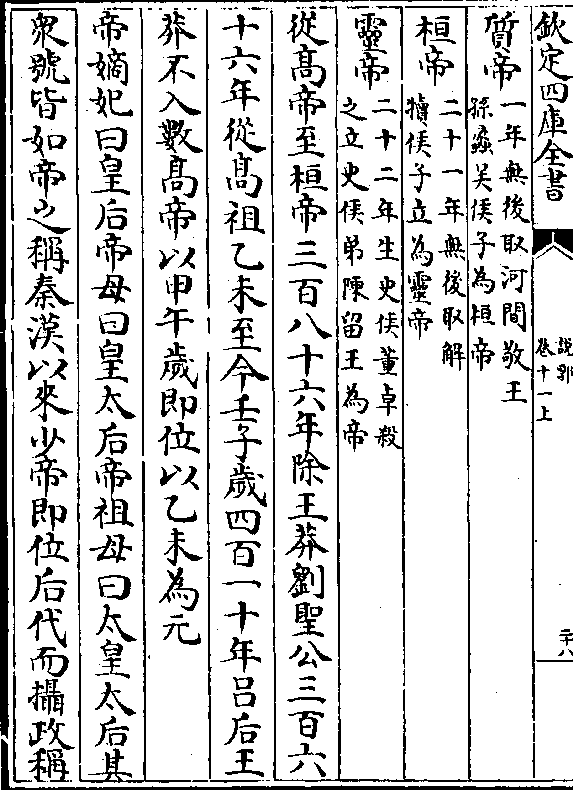 欽定四庫全書
說郛
卷十一上
二十八
質帝
一年無後取河間敬王
孫蠡吴侯子為桓帝
桓帝
二十一年無後取解
犢侯子立為靈帝
靈帝
二十二年生史侯董卓殺
之立史侯弟陳留王為帝
從髙帝至桓帝三百八十六年除王莽劉聖公三百六
十六年從髙祖乙未至今壬子歲四百一十年吕后王
莽不入數髙帝以甲午歲即位以乙未為元
帝嫡妃曰皇后帝母曰皇太后帝祖母曰太皇太后其
衆號皆如帝之稱秦漢以來少帝即位后代而攝政稱